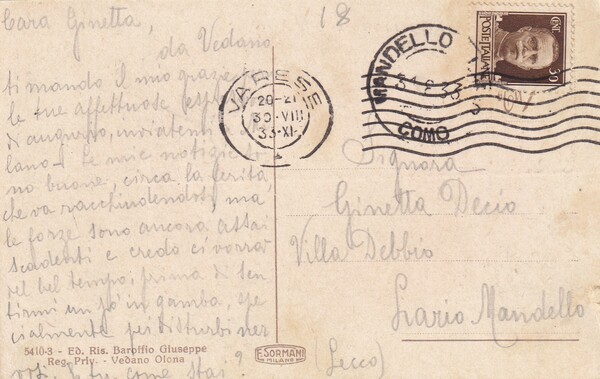 Cara Ginetta,
da Vedano
ti mando il mio grazie
le tue affettuose
di augurio, inviatemi a
lano. Le mie notizie so
no buone, circa la ferita,
che va racchiudendosi, ma
le forze sono ancora assai
scadenti e credo ci vorrà
del bel tempo, prima di sen
tirmi un po' in gamba, spe
cialmente pei disturbi ner
come stai?
5410-3 - Ed. Ris. Baroffio Giuseppe
Reg. Priv. - Vedano Olona
F. SORMANI
MILANO
18
VARESE
20-21
30-VIII
33-XI
MANDELLO
COMO
POSTE ITALIANE
CENT
30
Signora
Ginetta Decio
Villa Debbio
Lario Mandello
(Lecco)